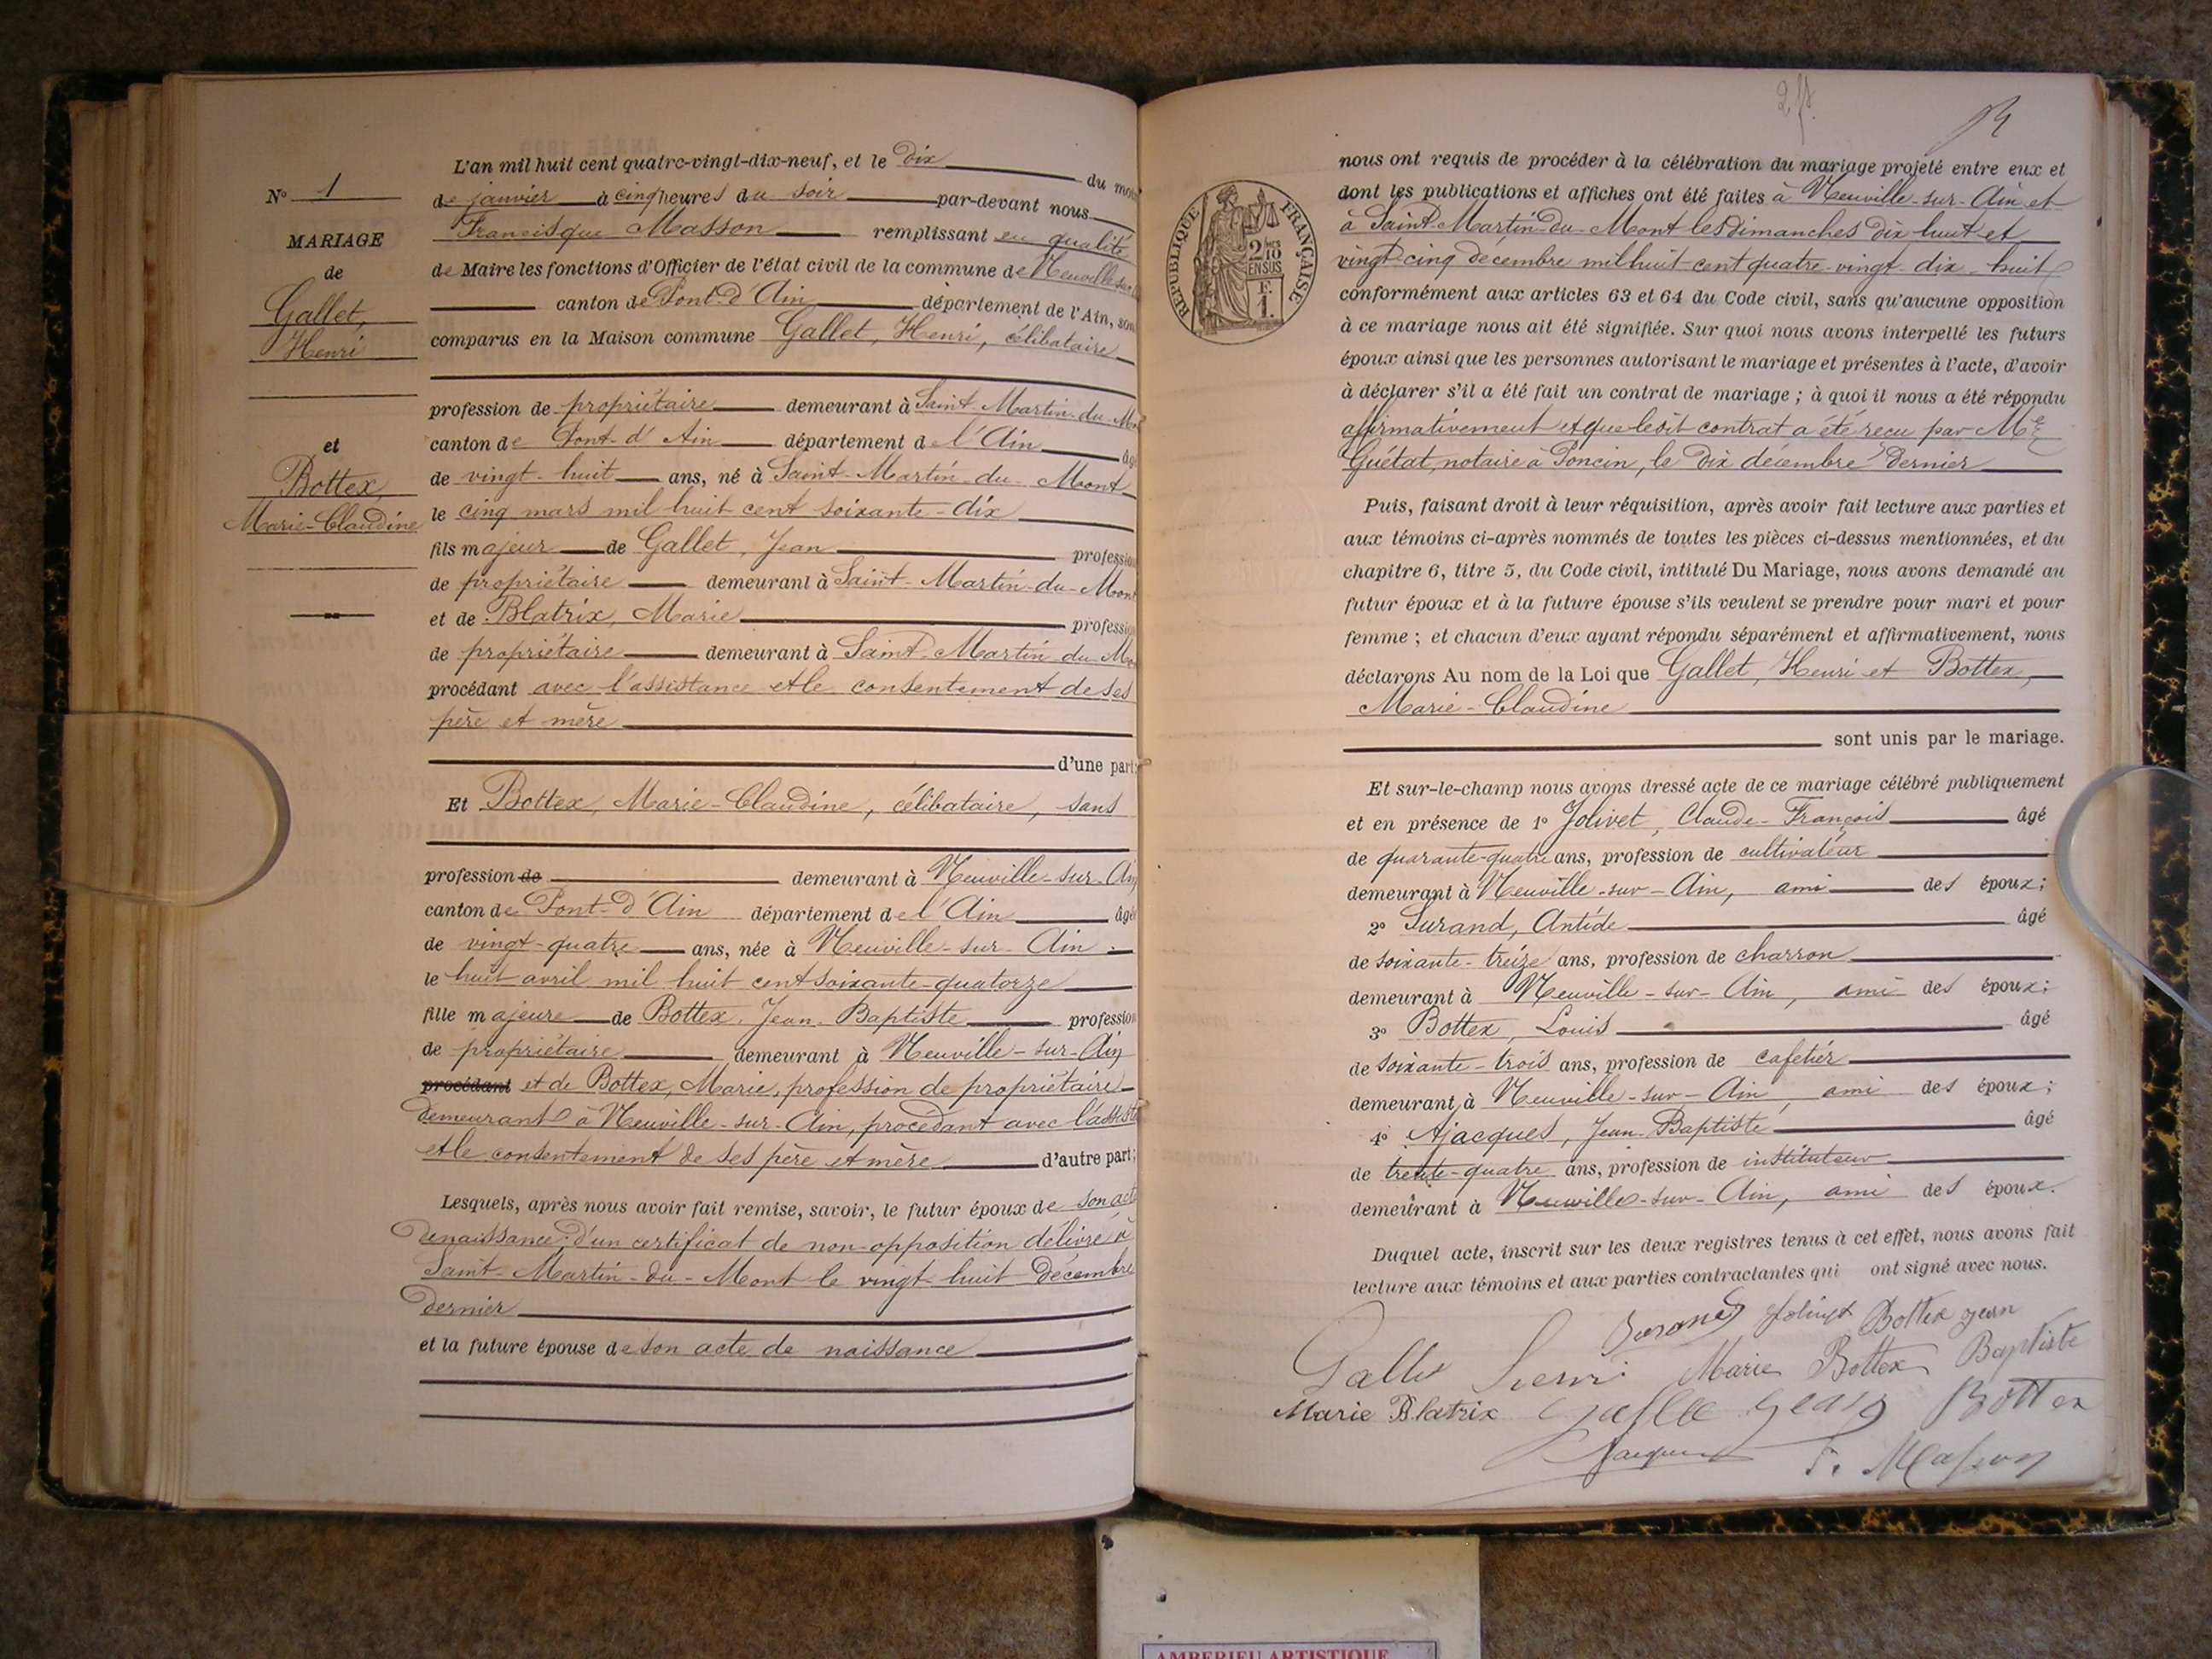 N° 1
MARIAGE
de
Gallet,
Henri
et
Bottex,
Marie-Claudine
L'an mil huit cent quatre-vingt-dix-neuf, et le dix du mois
de janvier à cinq heures du soir par-devant nous
Francisque Masson remplissant en qualité
de Maire les fonctions d'Officier de l'état civil de la commune de Neuville sur
canton de Pont-d'Ain département de l'Ain, son
comparus en la Maison commune Gallet, Henri, célibataire
profession de propriétaire demeurant à Saint-Martin-du-Mo
canton de Pont-d'Ain département de l'Ain âg
de vingt-huit ans, né à Saint-Martin-du-Mont
le cinq mars mil huit cent soixante-dix
fils majeur de Gallet, Jean profession
de propriétaire demeurant à Saint-Martin-du-Mont
et de Blatrix, Marie profession
de propriétaire demeurant à Saint-Martin du Mo
procédant avec l'assistance et le consentement de ses
père et mère
d'une part;
Et Bottex, Marie-Claudine, célibataire, sans
profession de demeurant à Neuville-sur-Ain
canton de Pont-d'Ain département de l'Ain âgé
de vingt-quatre ans, née à Neuville-sur-Ain
le huit avril mil huit cent soixante-quatorze
fille majeure de Bottex, Jean-Baptiste profession
de propriétaire demeurant à Neuville-sur-Ain
procédant et de Bottex, Marie, profession de propriétaire
demeurant à Neuville-sur-Ain, procédant avec l'assiste
et le consentement de ses père et mère d'autre part;
Lesquels, après nous avoir fait remise, savoir, le futur époux de son acte
de naissance; d'un certificat de non-opposition délivré à
Saint-Martin-du-Mont le vingt-huit décembre
dernier
et la future épouse de son acte de naissance
RÉPUBLIQUE FRANÇAISE
2/10
EN SUS
F.
1.
nous ont requis de procéder à la célébration du mariage projeté entre eux et
dont les publications et affiches ont été faites à Neuville-sur-Ain et
à Saint-Martin-du-Mont les dimanches dix huit et
vingt cinq décembre mil huit cent quatre-vingt-dix-huit
conformément aux articles 63 et 64 du Code civil, sans qu'aucune opposition
à ce mariage nous ait été signifiée. Sur quoi nous avons interpellé les futurs
époux ainsi que les personnes autorisant le mariage et présentes à l'acte, d'avoir
à déclarer s'il a été fait un contrat de mariage ; à quoi il nous a été répondu
affirmativement et que ledit contrat a été reçu par Me
Guétat, notaire à Poncin, le dix décembre dernier
Puis, faisant droit à leur réquisition, après avoir fait lecture aux parties et
aux témoins ci-après nommés de toutes les pièces ci-dessus mentionnées, et du
chapitre 6, titre 5, du Code civil, intitulé Du Mariage, nous avons demandé au
futur époux et à la future épouse s'ils veulent se prendre pour mari et pour
femme ; et chacun d'eux ayant répondu séparément et affirmativement, nous
déclarons Au nom de la Loi que Gallet, Henri et Bottex,
Marie-Claudine
sont unis par le mariage.
Et sur-le-champ nous avons dressé acte de ce mariage célébré publiquement
et en présence de 1° Jolivet, Claude-François âgé
de quarante-quatre ans, profession de cultivateur
demeurant à Neuville-sur-Ain, ami des époux;
2° Surand, Antide âgé
de soixante-treize ans, profession de charron
demeurant à Neuville-sur-Ain, ami des époux;
3° Bottex, Louis âgé
de soixante-trois ans, profession de cafetier
demeurant à Neuville-sur-Ain, ami des époux;
4° Ajacques, Jean-Baptiste âgé
de trente-quatre ans, profession de instituteur
demeurant à Neuville-sur-Ain, ami des époux.
Duquel acte, inscrit sur les deux registres tenus à cet effet, nous avons fait
lecture aux témoins et aux parties contractantes qui ont signé avec nous.
Surand Jolivet Bottex Jean
Gallet Henri Marie Bottex Baptiste
Marie Blatrix Gallet Jean Bottex
Ajacques F. Masson
AMBERIEU ARTISTIQUE